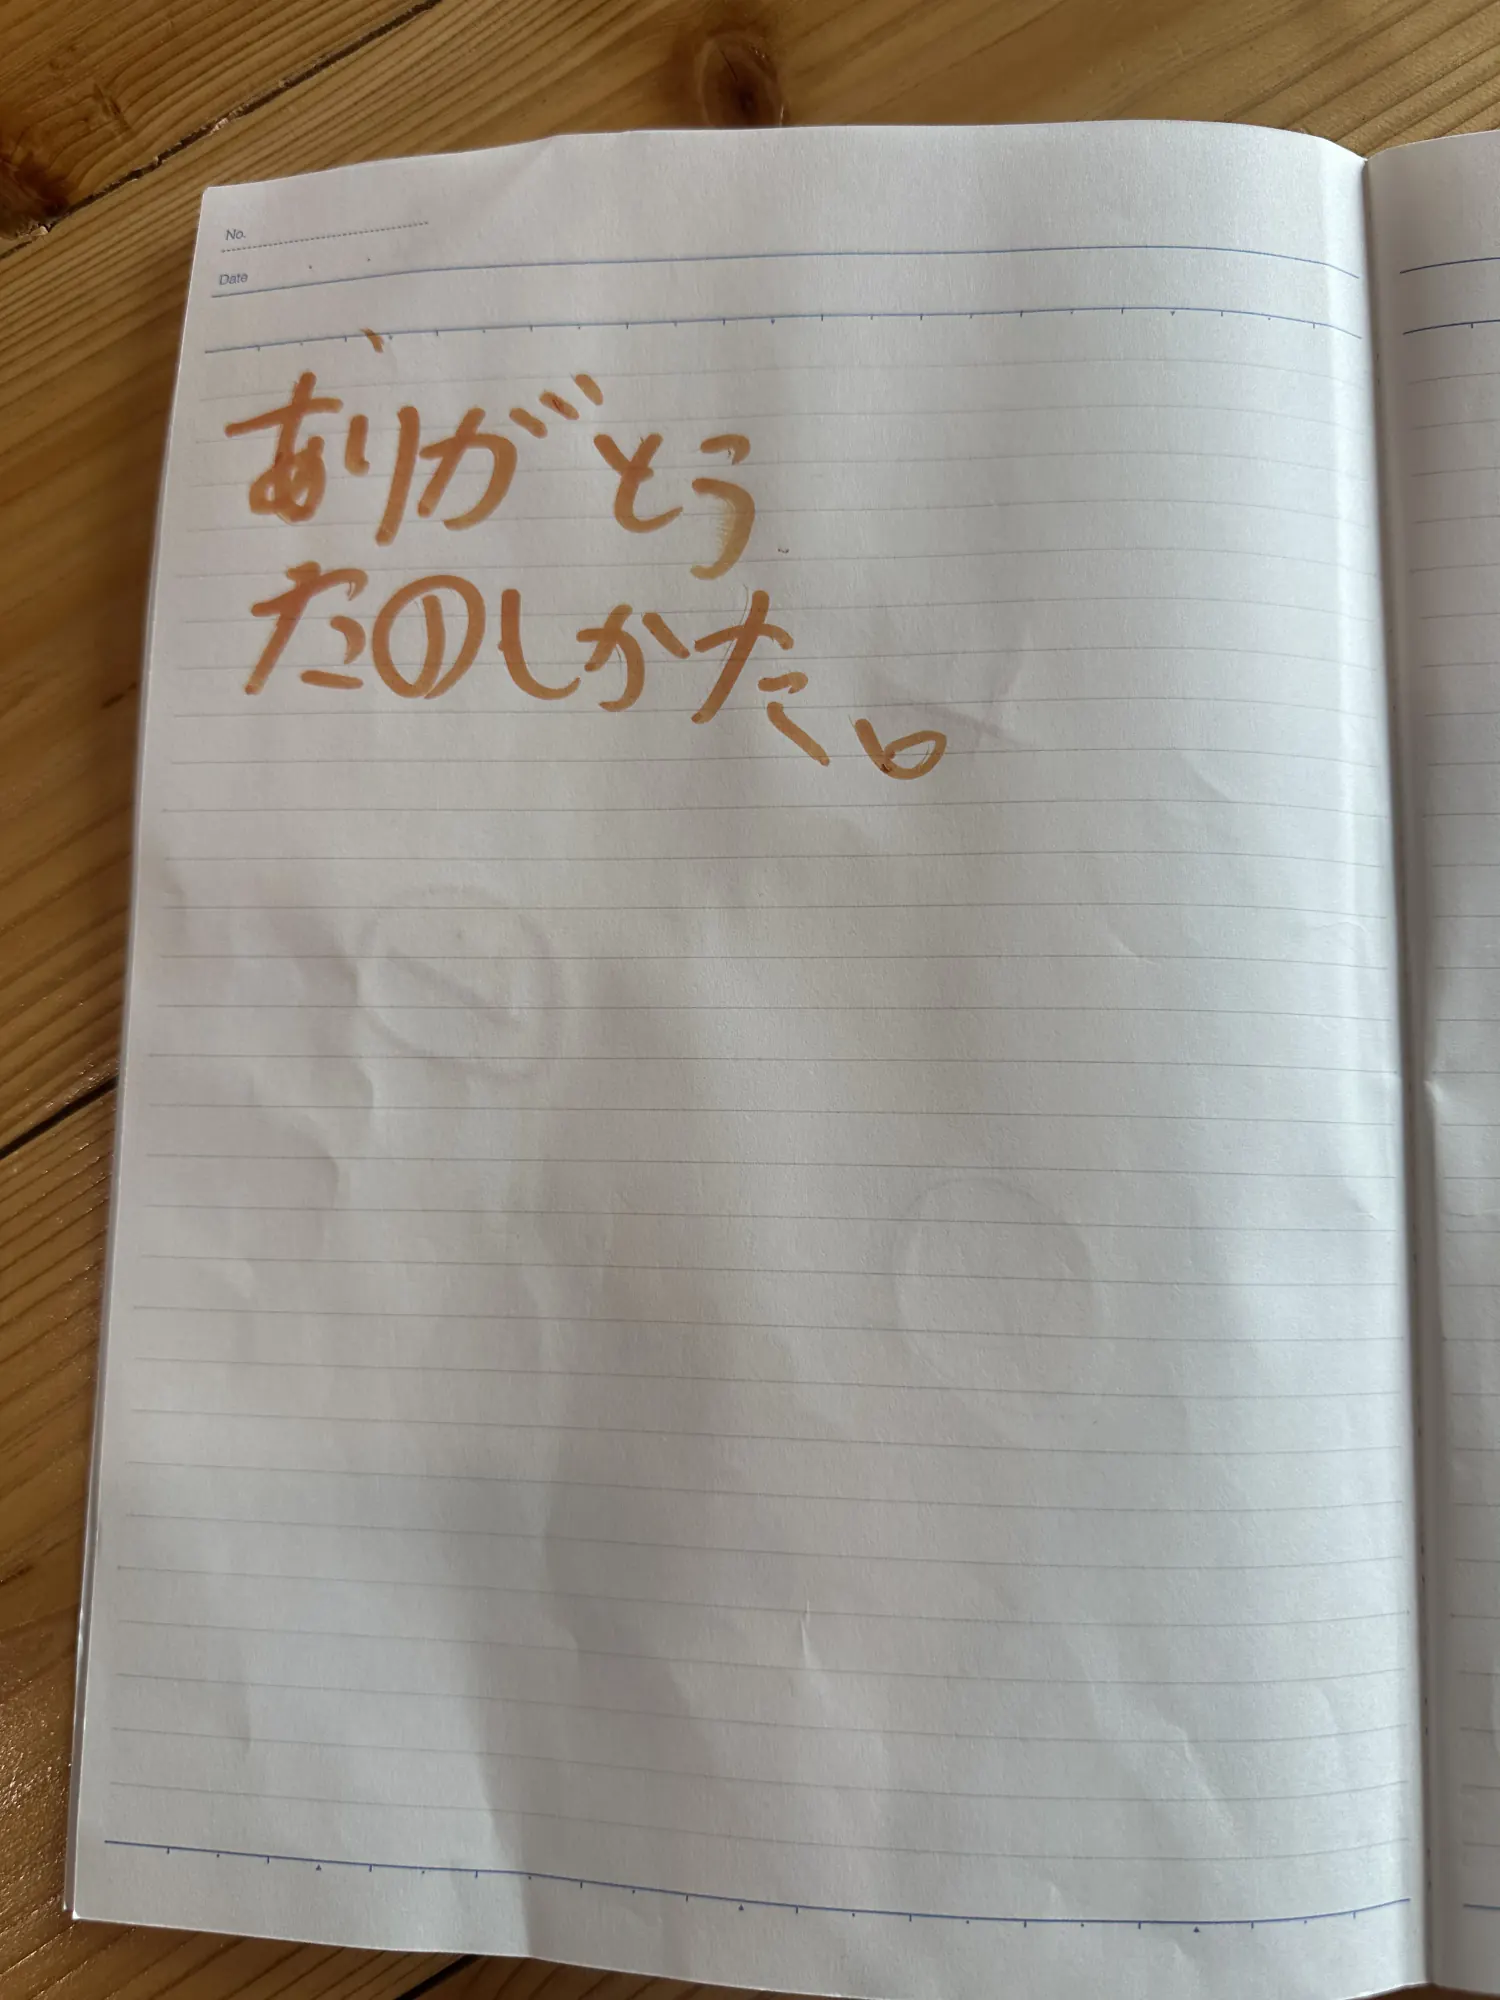 No.
Date
ありがとう
たのしかた。